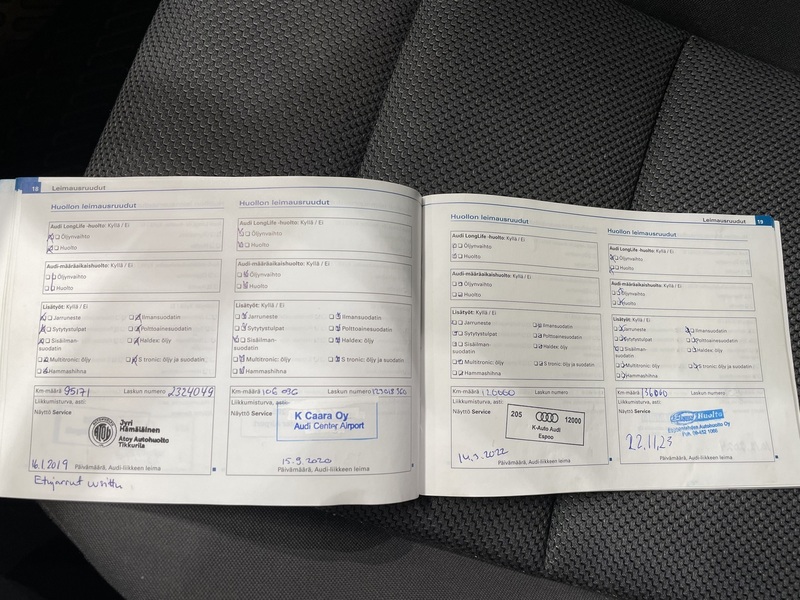 18 Leimausruudut
Huollon leimausruudut
Audi LongLife -huolto: Kyllä / Ei
Öljynvaihto
Huolto
Audi-määräaikaishuolto: Kyllä / Ei
Öljynvaihto
Huolto
Lisätyöt: Kyllä / Ei
Jarruneste
Ilmansuodatin
Sytytystulpat
Polttoainesuodatin
Sisäilman-
suodatin
Haldex: öljy
Multitronic: öljy
S tronic: öljy ja suodatin
Hammashihna
Km-määrä 95171 Laskun numero 2324049
Liikkumisturva, asti:
Näyttö Service
Jyri
Hämäläinen
Atoy Autohuolto
Tikkurila
16.1.2019 Päivämäärä, Audi-liikkeen leima
Etujarrut
Huollon leimausruudut
Audi LongLife -huolto: Kyllä / Ei
Öljynvaihto
Huolto
Audi-määräaikaishuolto: Kyllä / Ei
Öljynvaihto
Huolto
Lisätyöt: Kyllä / Ei
Jarruneste
Ilmansuodatin
Sytytystulpat
Polttoainesuodatin
Sisäilman-
suodatin
Haldex: öljy
Multitronic: öljy
S tronic: öljy ja suodatin
Hammashihna
Km-määrä 106 096 Laskun numero
Liikkumisturva, asti:
Näyttö Service
K Caara Oy
Audi Center Airport
15.9.2020
Päivämäärä, Audi-liikkeen leima
Leimausruudut 19
Huollon leimausruudut
Audi LongLife -huolto: Kyllä / Ei
Öljynvaihto
Huolto
Audi-määräaikaishuolto: Kyllä / Ei
Öljynvaihto
Huolto
Lisätyöt: Kyllä / Ei
Jarruneste
Ilmansuodatin
Sytytystulpat
Polttoainesuodatin
Sisäilman-
suodatin
Haldex: öljy
Multitronic: öljy
S tronic: öljy ja suodatin
Hammashihna
Km-määrä 120060 Laskun numero
Liikkumisturva, asti:
Näyttö Service
205 12000
K-Auto Audi
Espoo
14.3.2022 Päivämäärä, Audi-liikkeen leima
Huollon leimausruudut
Audi LongLife -huolto: Kyllä / Ei
Öljynvaihto
Huolto
Audi-määräaikaishuolto: Kyllä / Ei
Öljynvaihto
Huolto
Lisätyöt: Kyllä / Ei
Jarruneste
Ilmansuodatin
Sytytystulpat
Polttoainesuodatin
Sisäilman-
suodatin
Haldex: öljy
Multitronic: öljy
S tronic: öljy ja suodatin
Hammashihna
Km-määrä 136060 Laskun numero
Liikkumisturva, asti:
Näyttö Service
Huolto
Autohuolto Oy
22.11.23
Päivämäärä, Audi-liikkeen leima